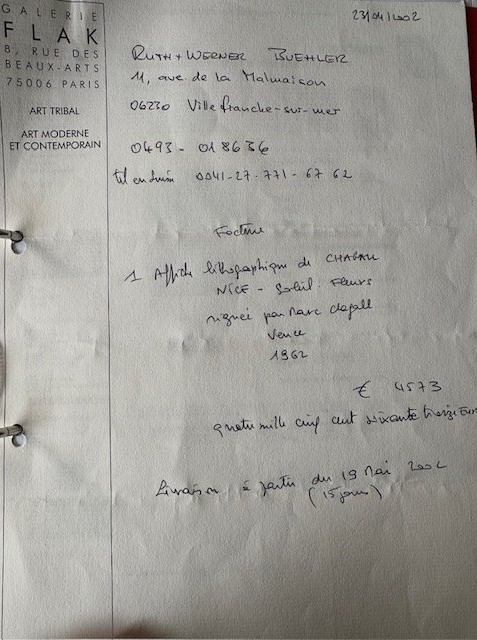 GALERIE
FLAK
8, RUE DES
BEAUX-ARTS
75006 PARIS
ART TRIBAL
ART MODERNE
ET CONTEMPORAIN
23/04/2002
RUTH + WERNER BUEHLER
11, ave. de la Malmaison
06230 Villefranche-sur-mer
0493 - 018636
tel en Suisse 0041-27-771-67 62
Facture
1 Affiche lithographique de CHAGALL
NICE - Soleil Fleurs
signée par Marc Chagall
Vence
1962
€ 4573
quatre mille cinq cent soixante treize Euros
Livraison à partir du 19 Mai 2002
(15 jours)